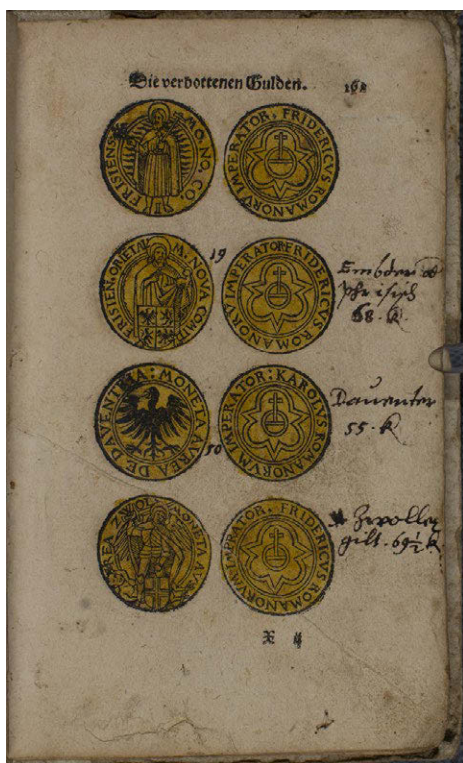 Die verbottenen Gulden. 161
FRISIENS MO. NO. CO
FRIDERICVS ROMANORV IMPERATOR
FRISIEN. ORIETAL M. NOVA COMIT
19
FRIDERICVS ROMANORV IMPERATOR
Embden
phrisisch
68. k
MONETA AVREA DE DAVENTRIA
50
KAROLVS ROMANORVM IMPERATOR
Dauenter
55. k
MONETA AVREA ZWOL
FRIDERICVS ROMANORVM IMPRATOR
Zwolle
gilt. 69½ k
X 4